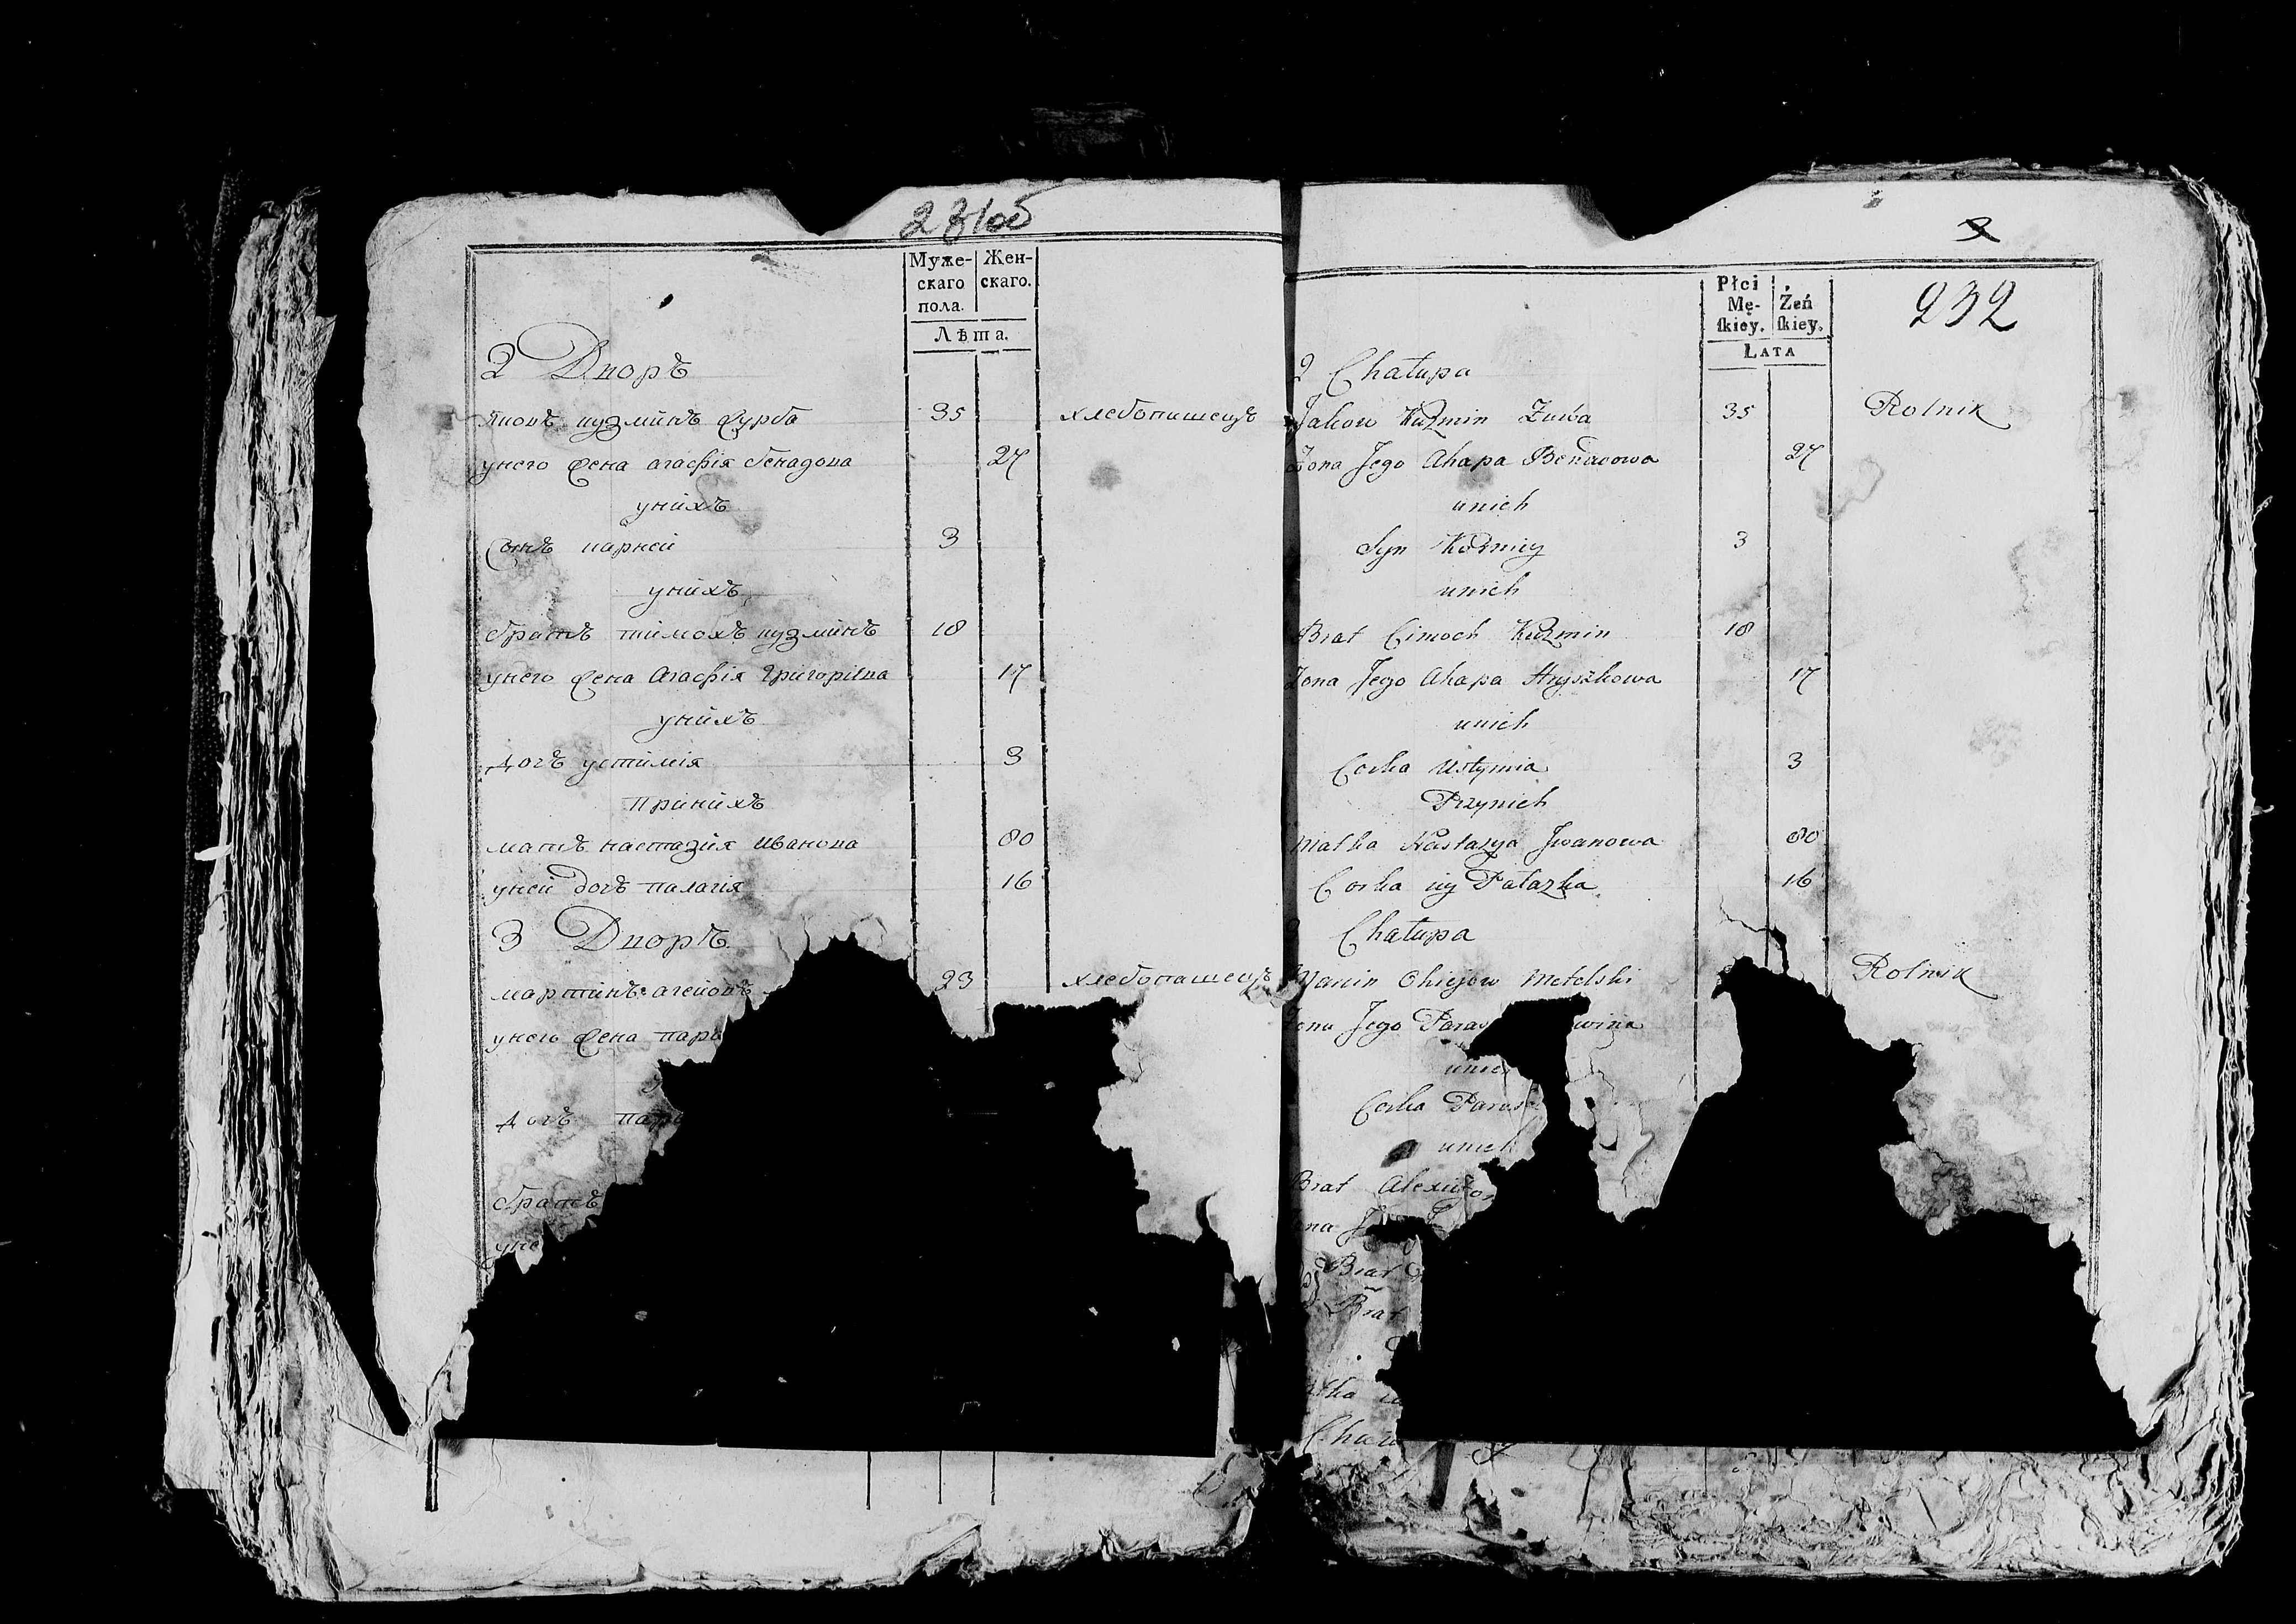 231об
Муже-
скаго
пола.
Жен-
скаго.
Лѣта.
2 Дворъ
Яковъ кузминъ Зурба 35 хлебопашецъ
унего жена агафія бенадова 27
унихъ
Сынъ карней 3
унихъ
братъ тимохъ кузминъ 18
унего жена Агафія Григорієва 17
унихъ
дочъ устимія 3
Принихъ
матъ настазия Иванова 80
уней дочъ палагія 16
3 Дворъ
мартинъ агеіовъ 23 хлебопашецъ
унего жена пара
дочъ пара
братъ
уне
232
Płci
Mę-
ſkiey.
Żeń
ſkiey.
LATA
2 Chałupa
Jakow Kuzmin Zurba 35 Rolnik
Zona Jego Ahapa Benadowa 27
unich
Syn Korniey 3
unich
Brat Cimoch Kuzmin 18
Zona Jego Ahapa Hryszkowa 17
unich
Corka Ustymia 3
Przynich
Matka Nastazya Jwanowa 80
Corka iey Pałazka 16
Chałupa
Marcin Ohiejow Metelski Rolnik
Zona Jego Paras wina
unich
Corka Paras
unich
Brat Alexiey
Brat
Brat